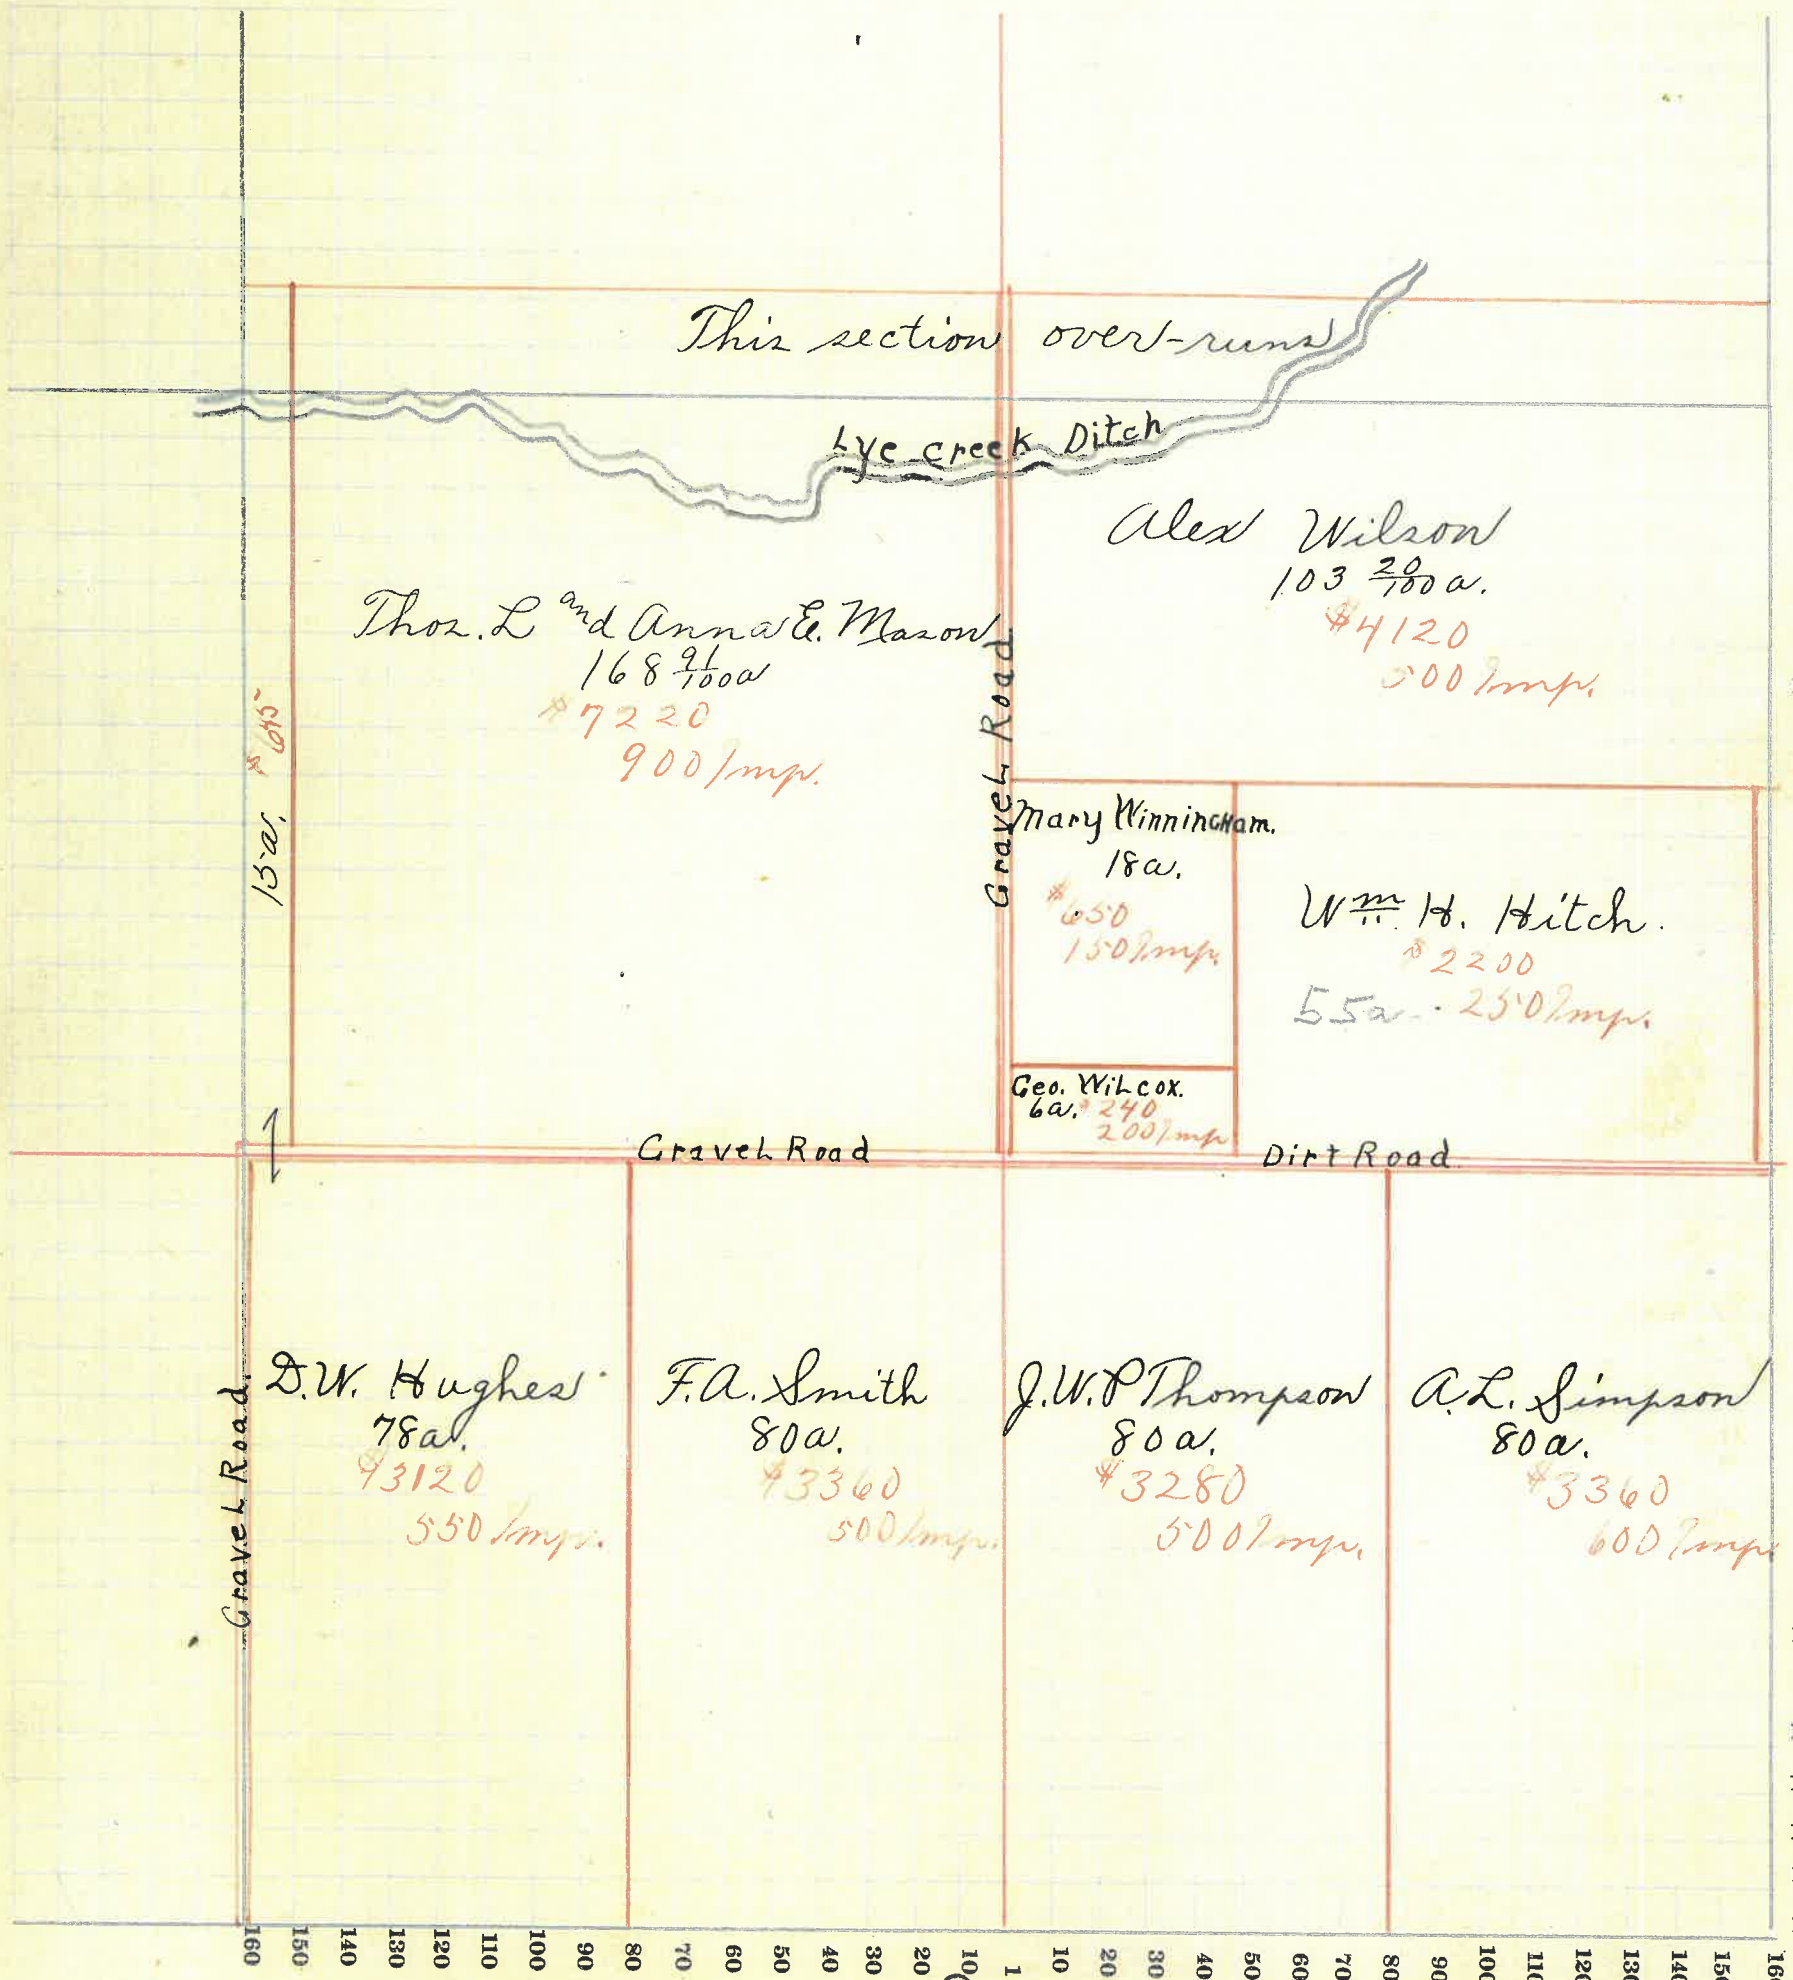 This section over-runs
Lye creek Ditch
Alex Wilson
103 20/100 a.
$4120
500 Imp.
Thos. L and Anna E. Mason
168 91/100 a
$7220
900 Imp.
15a. $645
Gravel Road
Mary Winningham.
18a.
$650
150 Imp.
Wm. H. Hitch.
$2200
55a. 250 Imp.
Geo. Wilcox.
6a. $240
200 Imp
Gravel Road
Dirt Road
Gravel Road.
D.W. Hughes
78a.
$3120
550 Imp.
F.A. Smith
80a.
$3360
500 Imp.
J.W.P Thompson
80a.
$3280
500 Imp.
A.L. Simpson
80a.
$3360
600 Imp.
160 150 140 130 120 110 100 90 80 70 60 50 40 30 20 10 1 10 20 30 40 50 60 70 80 90 100 110 120 130 140 150 160